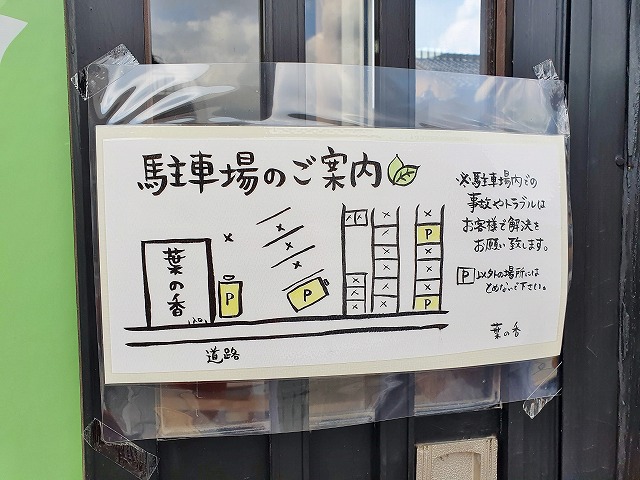 駐車場のご案内
※駐車場内での
事故やトラブルは
お客様で解決を
お願い致します。
P 以外の場所には
とめないで下さい。
葉の香
葉の香
P
P
P
P
道路